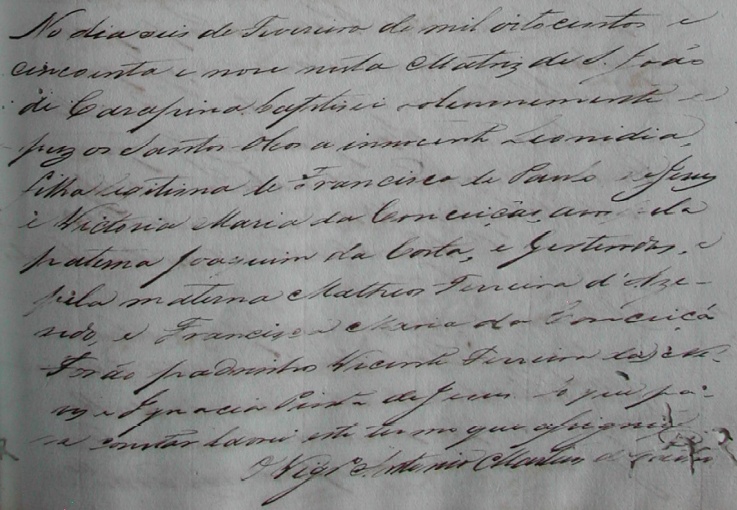 No dia seis de Fevereiro de mil oitocentos e
cincoenta e nove nesta Matriz de S. João
de Carapina baptisei solennemente e
puz os Santos Oleos a innocente Leonidia,
filha legitima de Francisco de Paulo de Jesus
e Victoria Maria da Conceição, avos dela
paterna Joaquim da Costa, e Gertrudes, e
pela materna Matheos Ferreira d'Aze-
vedo, e Francisca Maria da Conceiçã
Forão padrinhos Vicente Ferreira das Ne-
ves e Ignacia Pinta de Jesus do que pa-
ra constar lavrei este termo que assignei
O Vigrº Antonio Martins de